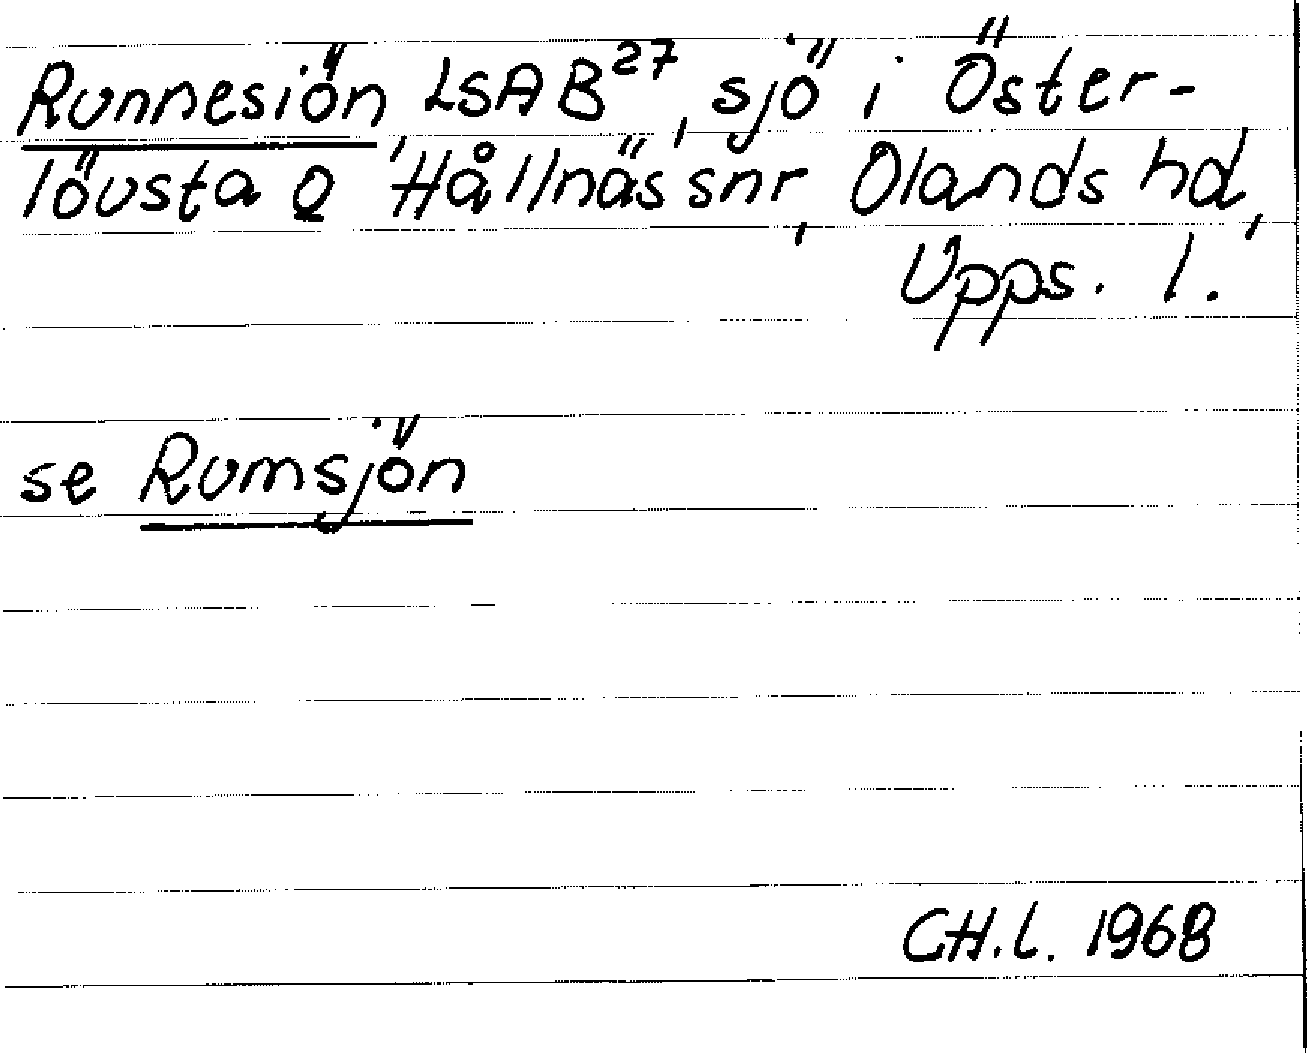 Runnesiön LSA B27, sjö i Öster-
lövsta o Hållnäs snr, Olands hd,
Upps. l.
se Rumsjön
CH.L. 1968